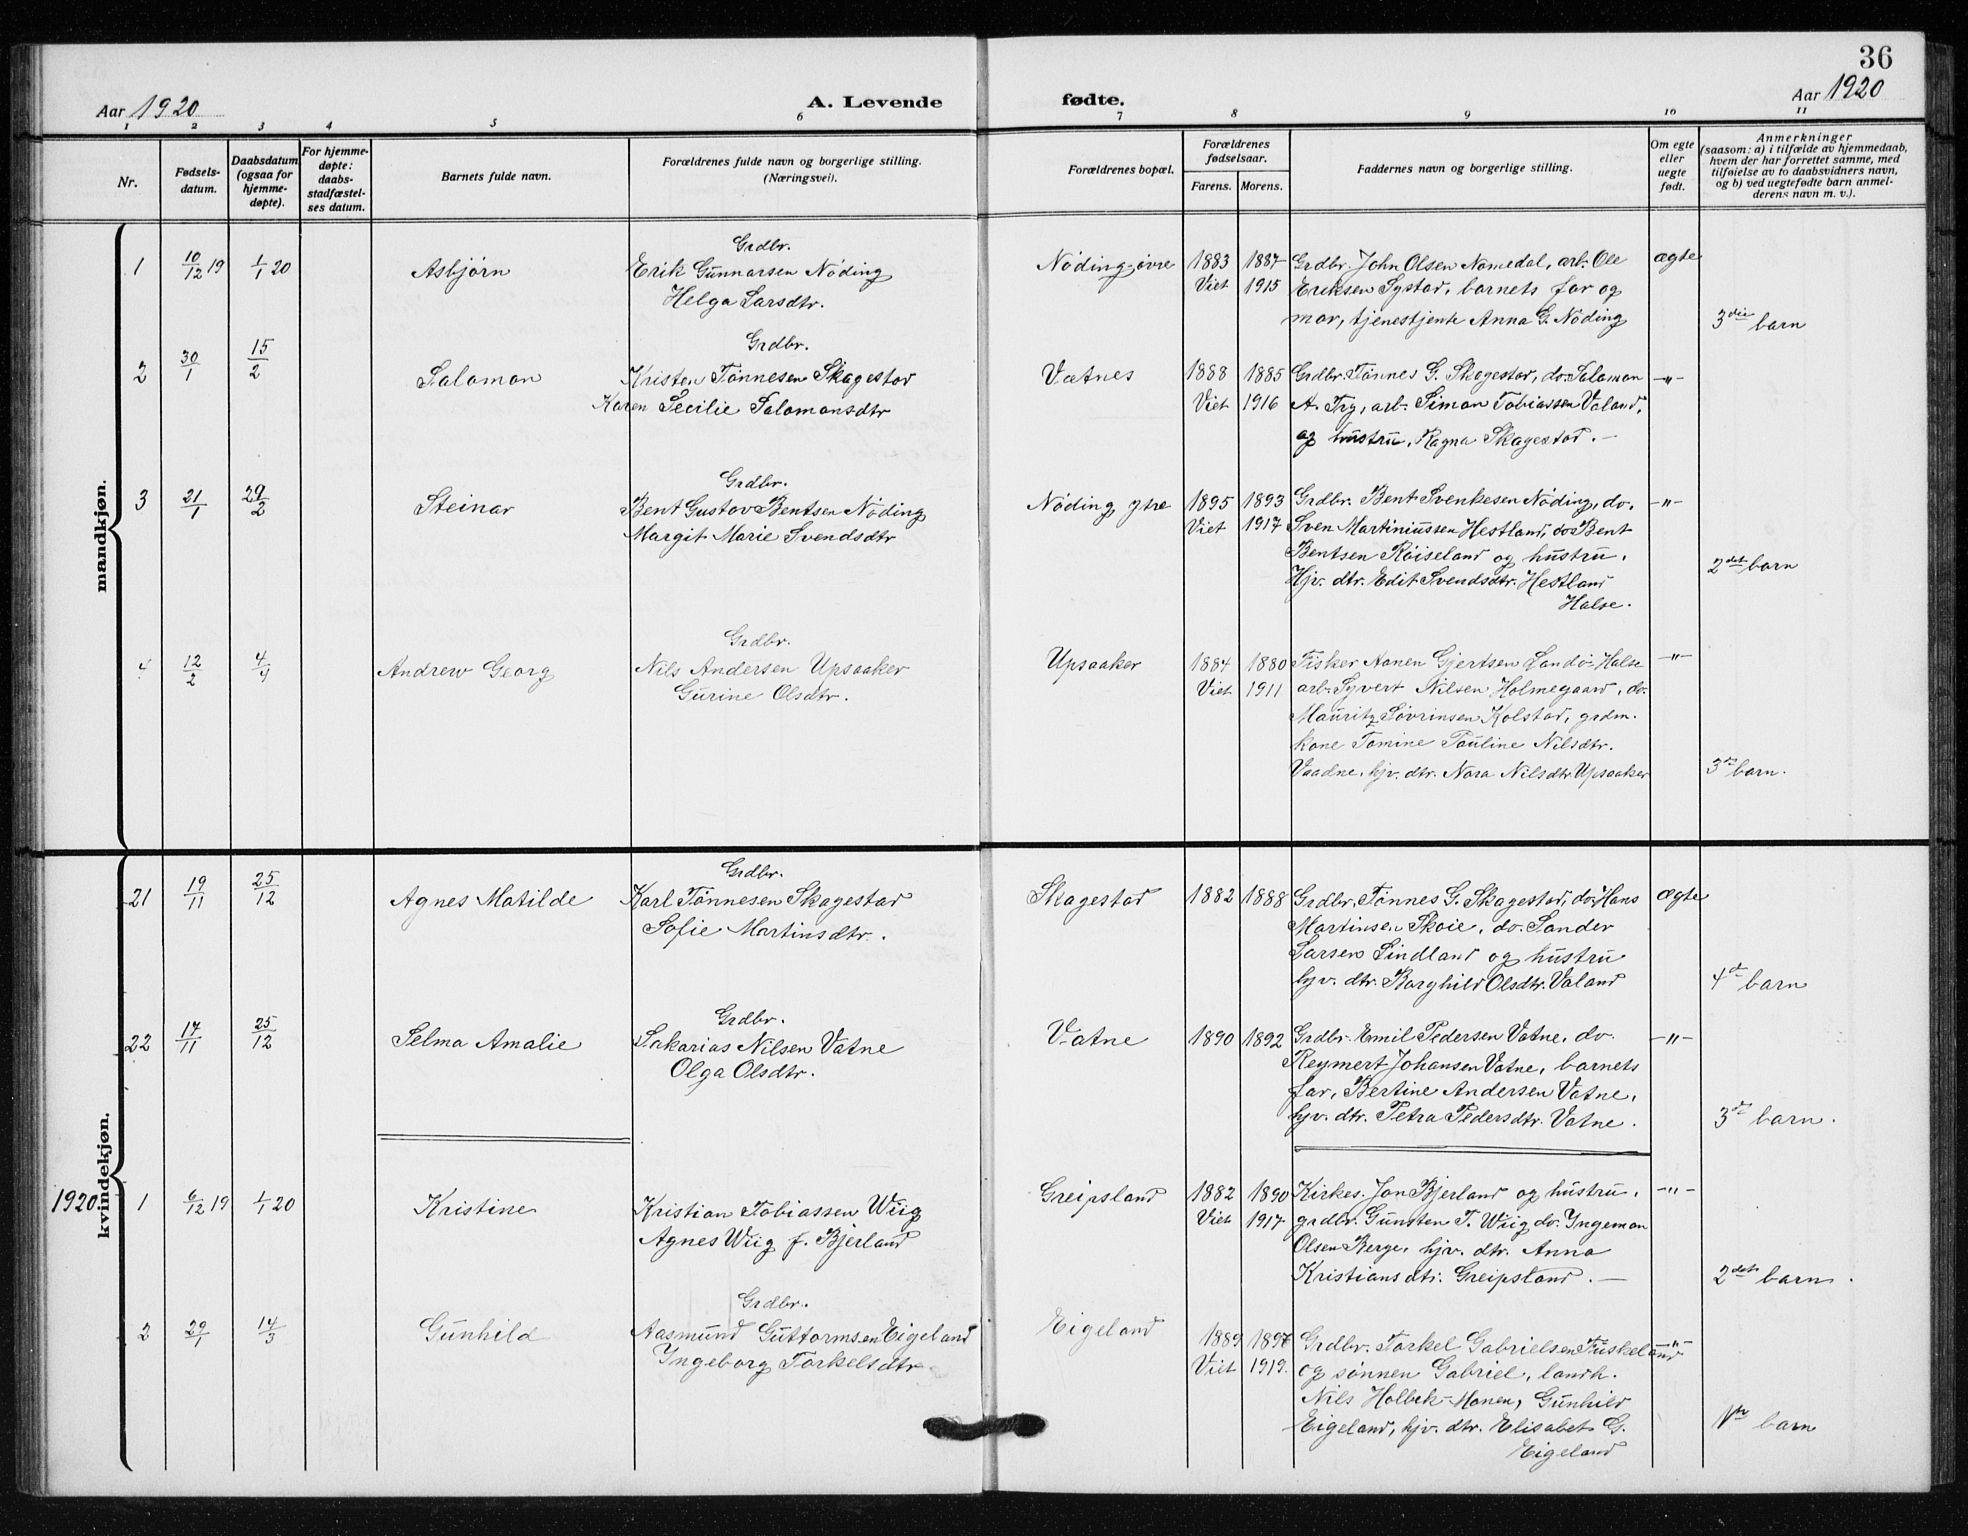 36
Aar 1920
A. Levende
fødte.
Aar 1920
1 2 3 4 5 6 7 8 9 10 11
Nr.
Fødsels-
datum.
Daabsdatum
(ogsaa for
hjemme-
døpte).
For hjemme-
døpte:
daabs-
stadfæstel-
ses datum.
Barnets fulde navn.
Forældrenes fulde navn og borgerlige stilling.
(Næringsvei).
Forældrenes bopæl.
Forældrenes
fødselsaar.
Farens. Morens.
Faddernes navn og borgerlige stilling.
Om egte
eller
uegte
født.
Anmerkninger
(saasom: a) i tilfælde av hjemmedaab,
hvem der har forrettet samme, med
tilføielse av to daabsvidners navn,
og b) ved uegtefødte barn anmel-
derens navn m. v.).
mandkjøn.
1 10/12 19 1/1 20 Asbjørn
Grdbr.
Erik Gunnarsen Nøding
Helga Larsdtr.
Nøding-øvre 1883 1887
Viet 1915
Grdbr. John Olsen Nomedal, arb. Ole
Eriksen Systad, barnets far og
mor, tjenestjente Anna G. Nøding
ægte
3die barn
2 30/1 15/2 Salomon
Grdbr.
Kristen Tønnesen Skagestad
Karen Secilie Salomonsdtr
Vatnes 1888 1885
Viet 1916
Grdbr. Tønnes G. Skagestad, do. Salomon
A. Try, arb. Simon Tobiassen Valand,
og hustru, Ragna Skagestad. —
—"—
3 21/1 29/2 Steinar
Grdbr.
Bent Gustav Bentsen Nøding
Margit Marie Svendsdtr
Nøding ytre 1895 1893
Viet 1917
Grdbr. Bent Svenkesen Nøding, do.
Sven Martiniussen Hestland, do Bent
Bentsen Røiseland og hustru,
Hjv. dtr. Edit Svendsdtr. Hestland
Halse.
—"—
2det barn
4 12/2 4/4 Andrew Georg
Grdbr.
Nils Andersen Upsaaker
Gurine Olsdtr.
Upsaaker 1884 1880
Viet 1911
Fisker Aanen Gjertsen Landø-Halse
arb. Syvert Nilsen Holmegaard, do.
Mauritz Søvrinsen Kolstad, grdm.
kone Tomine Pauline Nilsdtr.
Vaadne, hjv. dtr. Nora Nilsdtr Upsaaker
—"—
3d barn.
kvindekjøn.
21 19/11 25/12 Agnes Matilde
Grdbr.
Karl Tønnesen Skagestad
Sofie Martinsdtr.
Skagestad 1882 1888
Grdbr. Tønnes G. Skagestad, do. Hans
Martinsen Skoie, do. Sander
Larsen Lindland og hustru
hjv. dtr. Borghild Olsdtr. Valand
ægte
4d barn
22 17/11 25/12 Selma Amalie
Grdbr.
Sakarias Nilsen Vatne
Olga Olsdtr.
Vatne 1890 1892
Grdbr. Emil Pedersen Vatne, do.
Reymert Johansen Vatne, barnets
far, Bertine Andersen Vatne,
hjv. dtr. Petra Pedersdtr. Vatne.
—"—
3d barn.
1920 1 6/12 19 1/1 20 Kristine
Kristian Tobiassen Wiig
Agnes Wiig f. Bjerland
Greipsland 1882 1890
Viet 1917
Kirkes. Jon Bjerland og hustru,
grdbr. Gunsten T. Wiig do. Ingeman
Olsen Berge, hjv. dtr. Anna
Kristiansdtr. Greipsland. —
—"—
2det barn.
2 29/1 14/3 Gunhild
Grdbr.
Aasmund Guttormsen Eigeland
Ingeborg Torkelsdtr
Eigeland 1889 1897
Viet 1919.
Grdbr. Torkel Gabrielsen Fuskeland
og sønnen Gabriel, landh.
Nils Holbek-Monen, Gunhild
Eigeland, hjv. dtr. Elisabet G.
Eigeland
—"—
1ste barn